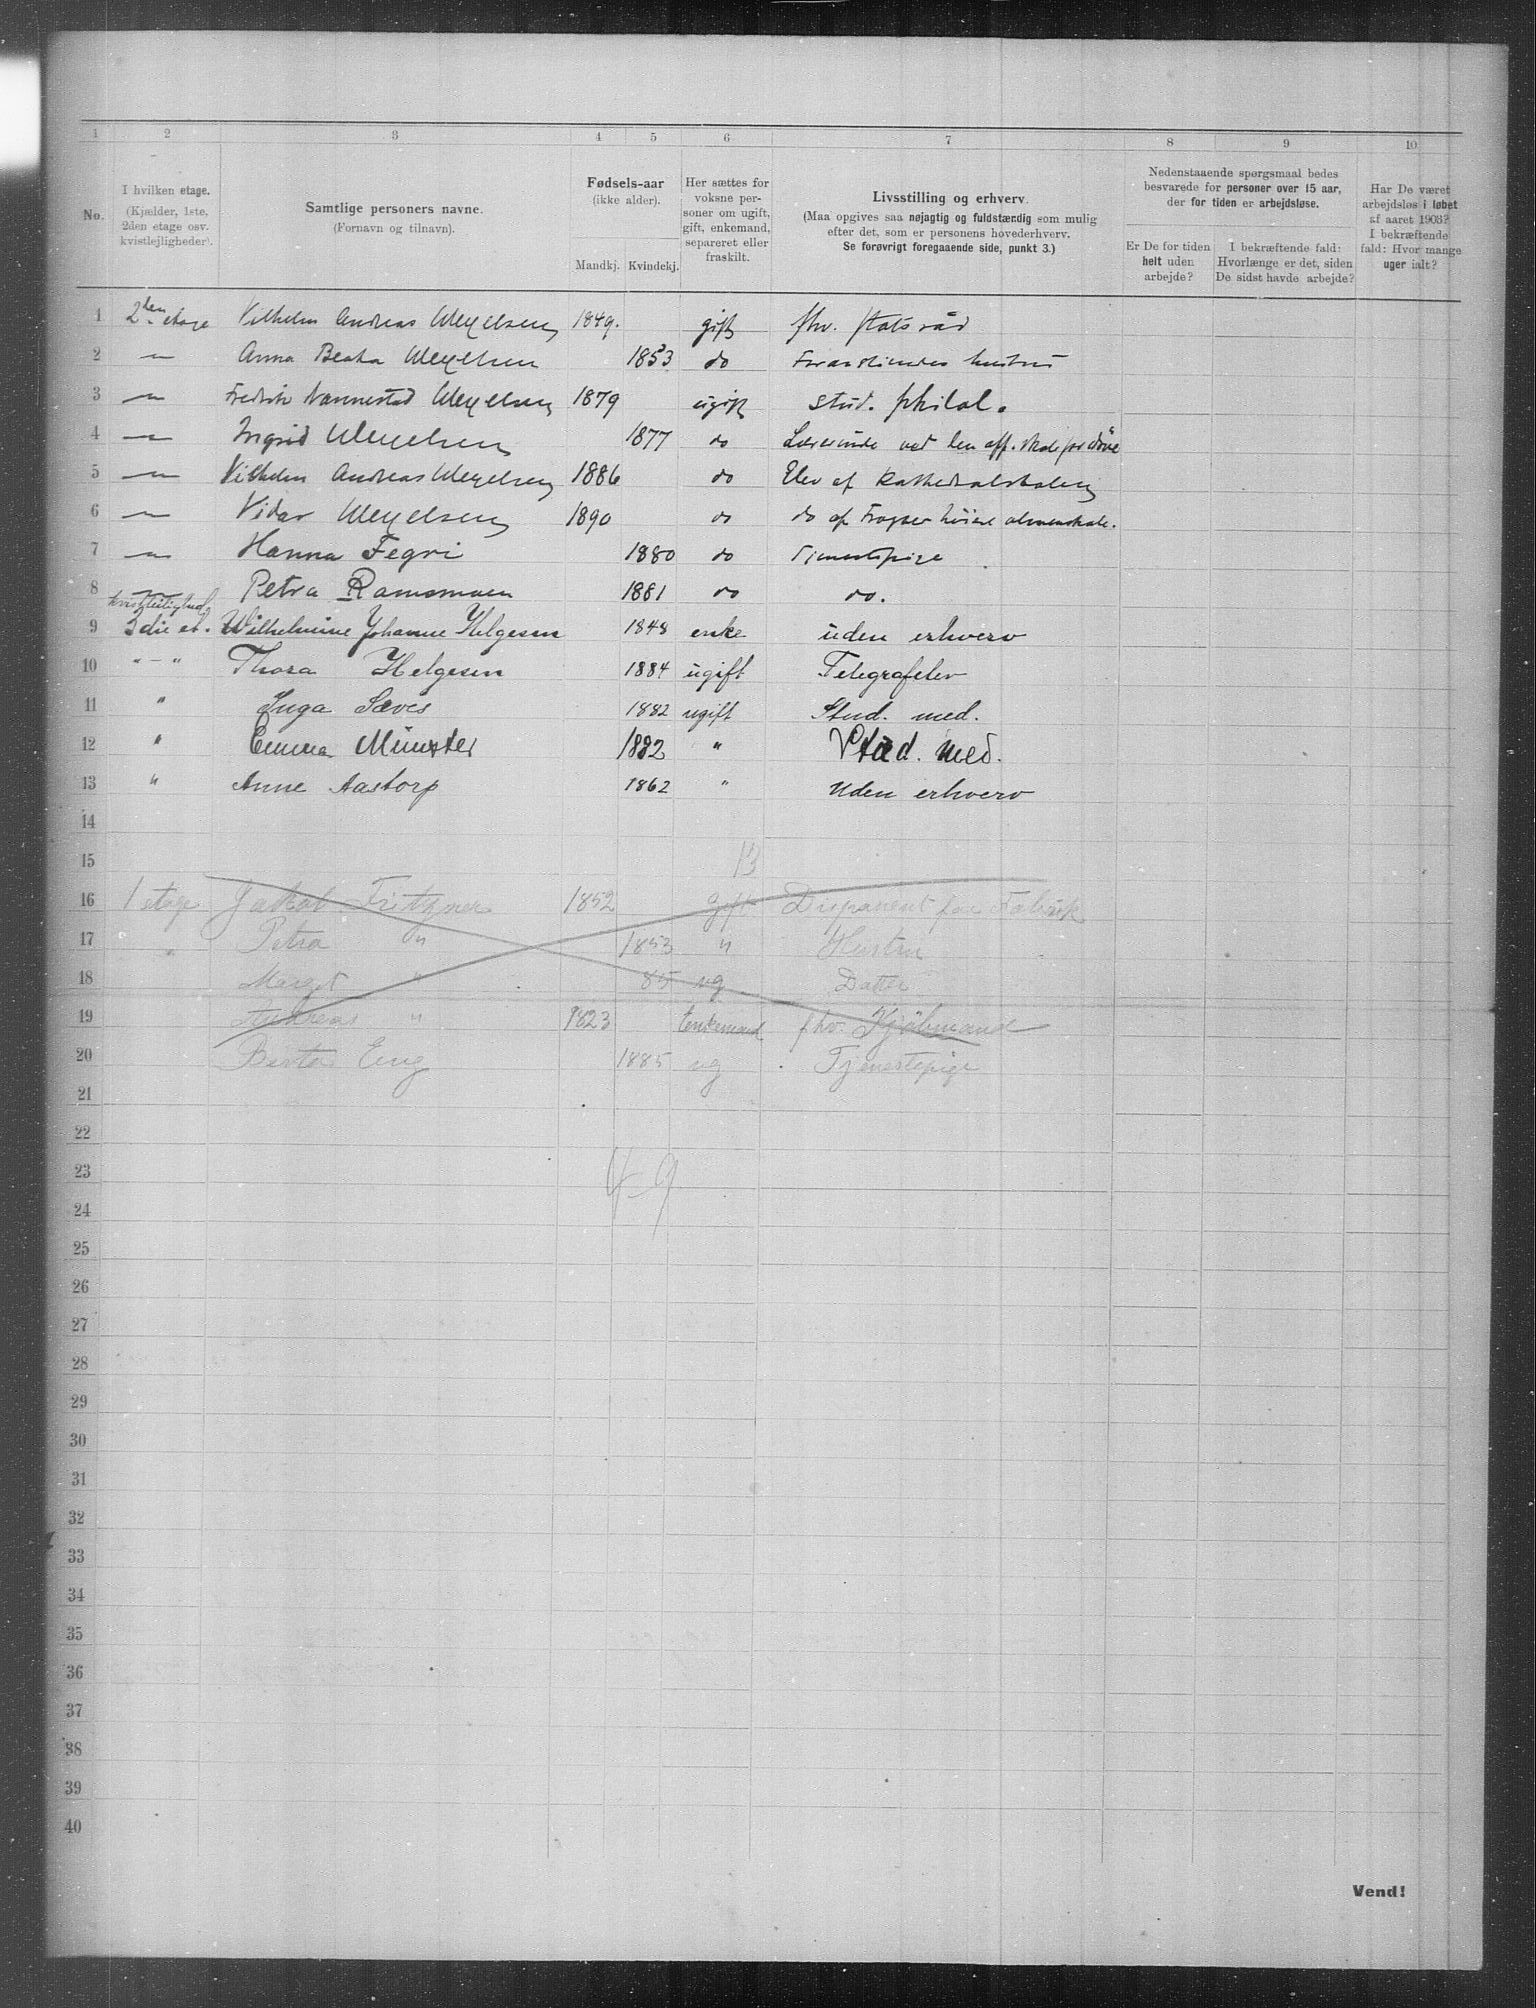 1 2 3 4 5 6 7 8 9 10
No.
I hvilken etage.
(Kjælder, 1ste,
2den etage osv.
kvistlejligheder).
Samtlige personers navne.
(Fornavn og tilnavn).
Fødsels-aar
(ikke alder).
Mandkj. Kvindekj.
Her sættes for
voksne per-
soner om ugift,
gift, enkemand,
separeret eller
fraskilt.
Livsstilling og erhverv.
(Maa opgives saa nøjagtig og fuldstændig som mulig
efter det, som er personens hovederhverv.
Se forøvrigt foregaaende side, punkt 3.)
Nedenstaaende spørgsmaal bedes
besvarede for personer over 15 aar,
der for tiden er arbejdsløse.
Er De for tiden
helt uden
arbejde?
I bekræftende fald:
Hvorlænge er det, siden
De sidst havde arbejde?
Har De været
arbejdsløs i løbet
af aaret 1903?
I bekræftende
fald: Hvor mange
uger ialt?
1 2den etage Vilhelm Andreas Wexelsen 1849. gift fhv. statsråd
2 — Anna Beata Wexelsen 1853 do Foranståendes hustru
3 — Fredrik Nannestad Wexelsen 1879 ugift stud. philol.
4 — Ingrid Wexelsen 1877 do Lærerinde ved den off. skole for døve
5 — Vilhelm Andreas Wexelsen 1886 do Elev af Kathedralskolen
6 — Vidar Wexelsen 1890 do do af Frogner høiere almenskole.
7 — Hanna Fegri 1880 do Tjenestepige
8 — Petra Ramsmoen 1881 do do.
kvistleilighed
9 3die et. Wilhelmine Johanne Helgesen 1848 enke uden erhverv
10 " — " Thora Helgesen 1884 ugift Telegrafelev
11 " Inga Sæves 1882 ugift Stud. med.
12 " Emma Münster 1882 " Stud. med.
13 " Anne Aastorp 1862 " Uden erhverv
14
15 13
16 1 etage Jakob Fritzner 1852 gift Disponent for Fabrik
17 " Petra " 1853 " Hustru
18 Marget " 85 ug Datter
19 Andreas " 1823 Enkemand fhv. Kjøbmand
20 Berta Eng 1885 ug Tjenestepige
21
22
23 49
24
25
26
27
28
29
30
31
32
33
34
35
36
37
38
39
40
Vend!